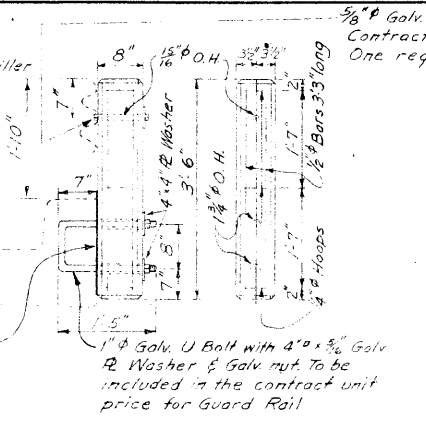 5/8" ϕ Galv.
Contract
One req
iller
8"
15/16" ϕ O.H.
3½" 3½"
7"
1'-10"
2"
1'-7"
½" ϕ Bars 3'3" long
4"x4" ⅊ Washer
3'-6"
1¾" ϕ O.H.
7"
8"
7"
1'-7"
2"
¼" ϕ Hoops
1'-5"
1" ϕ Galv. U Bolt with 4"□ x 5/16" Galv
⅊ Washer & Galv. nut. To be
included in the contract unit
price for Guard Rail